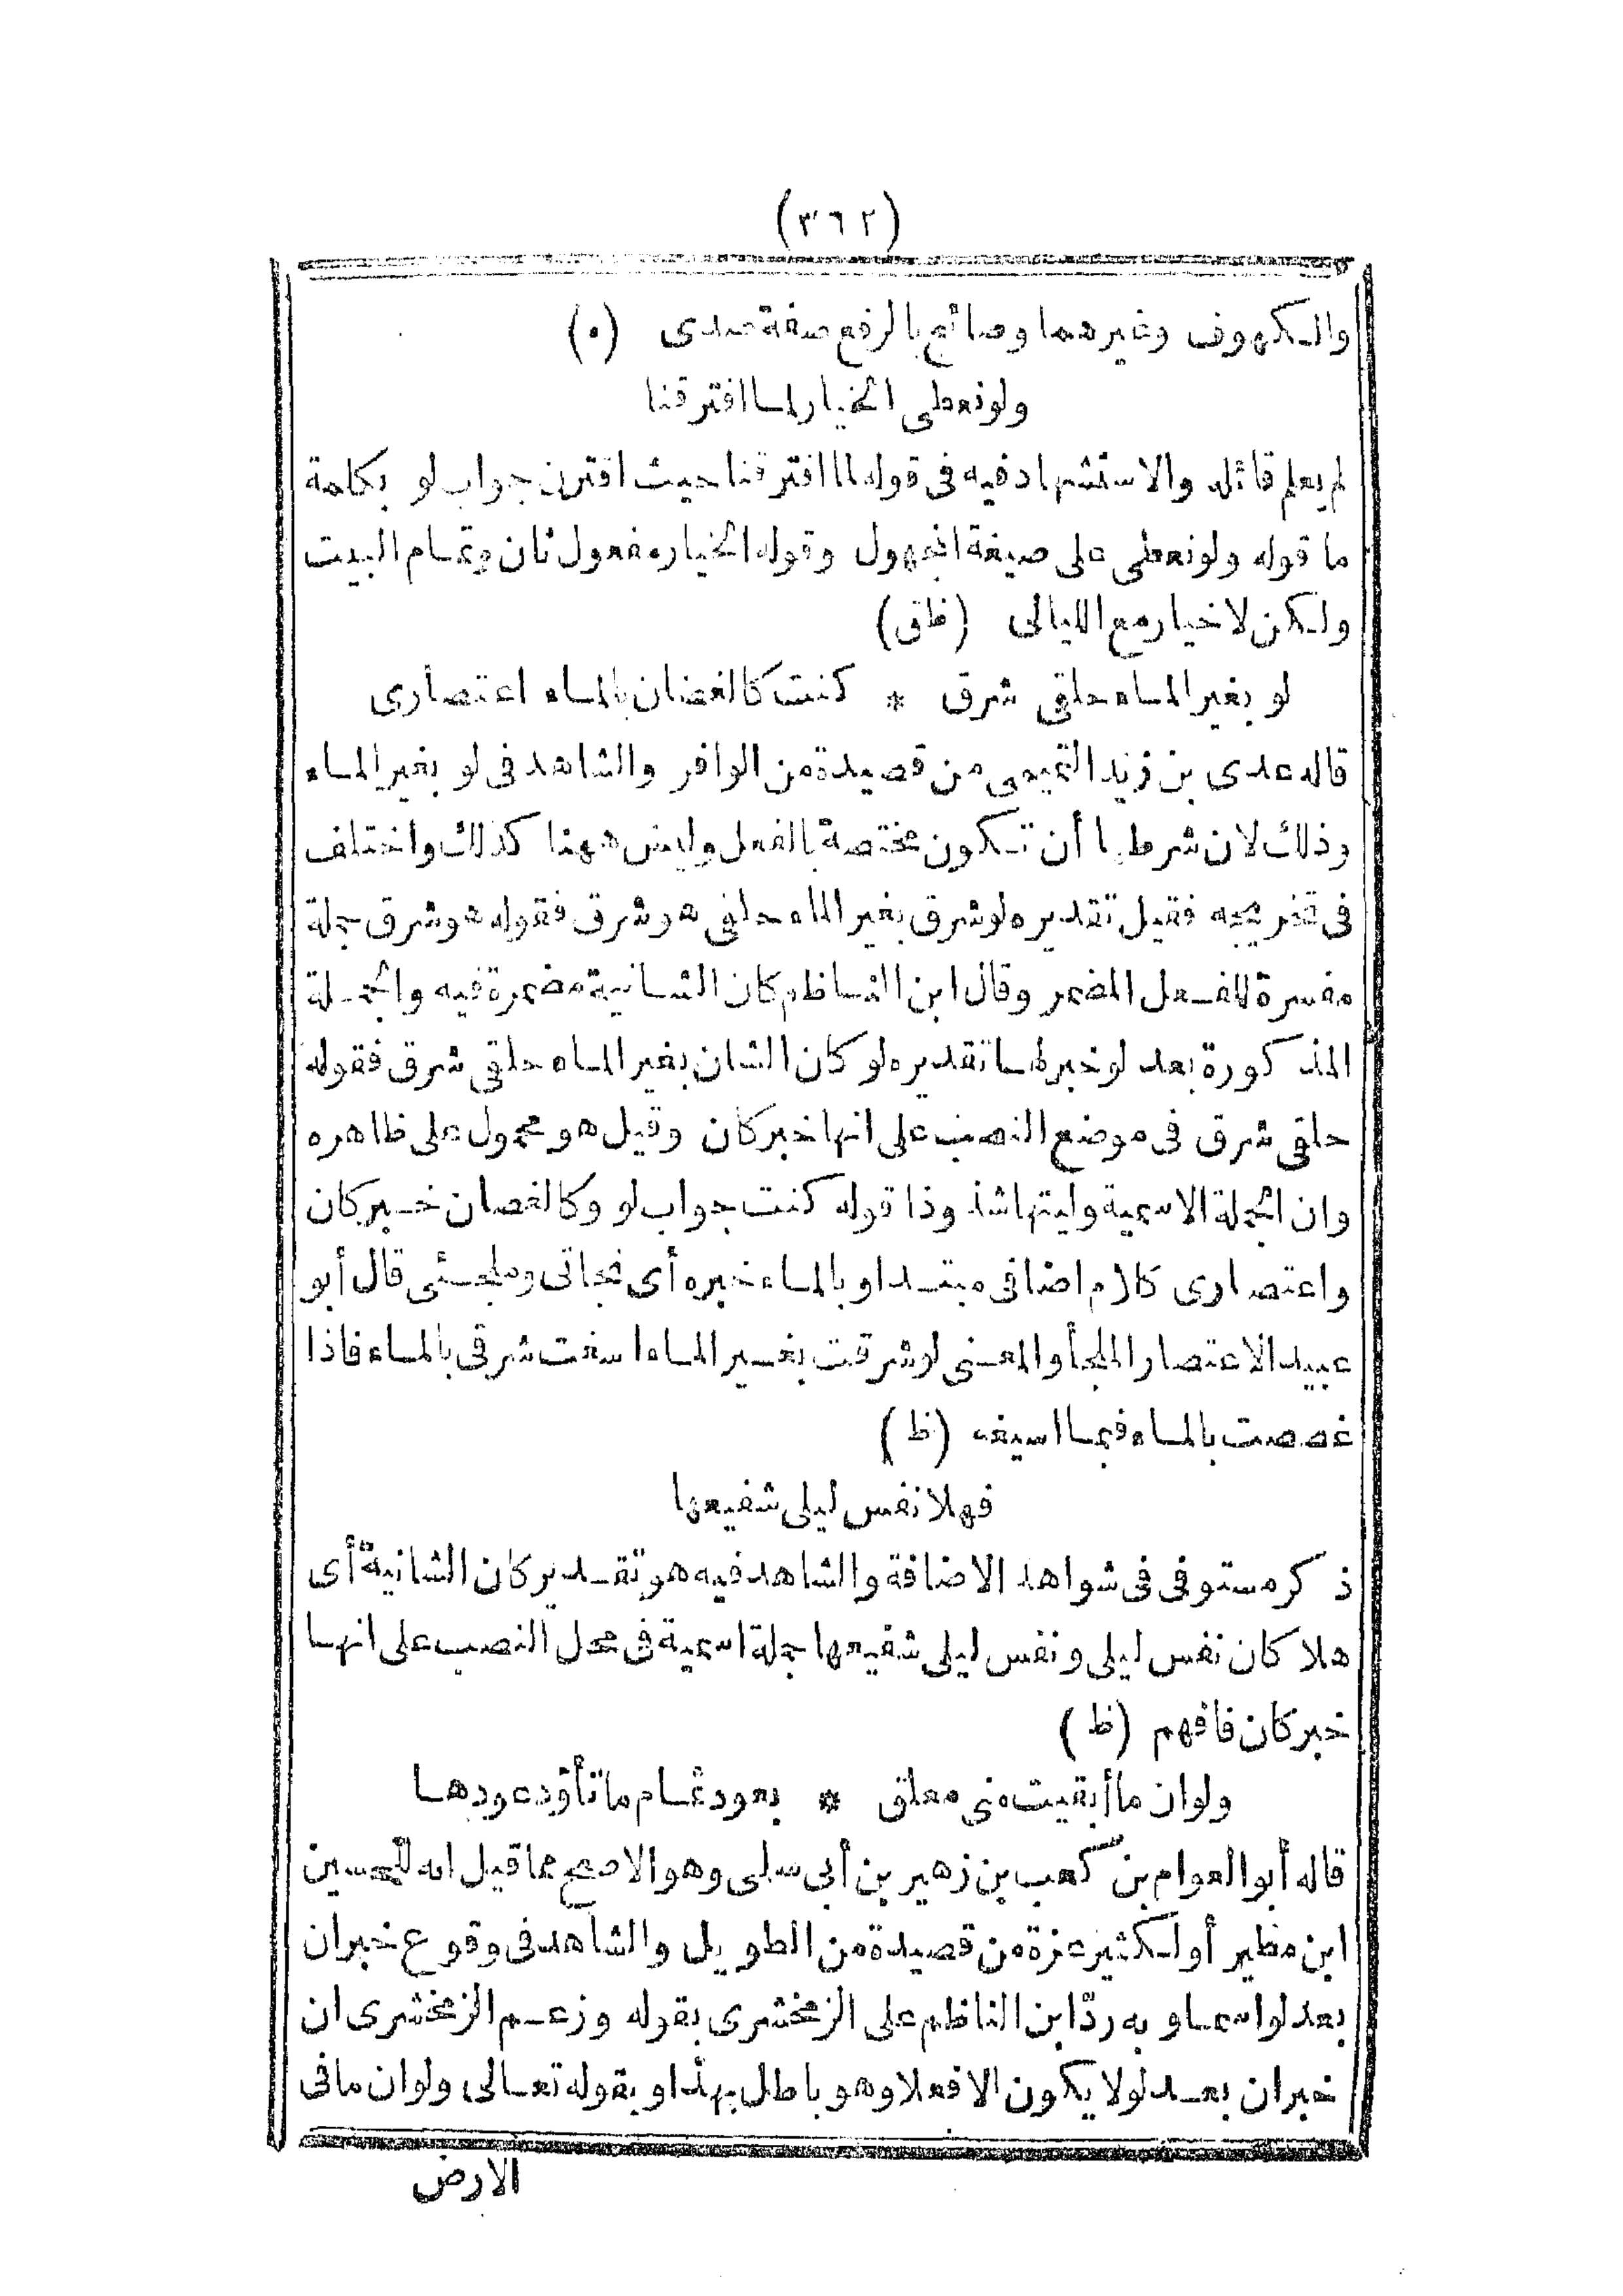 (٣٦٢)
والكهوف وغيرهما وصائح بالرفع صفة صدى (ه)
ولو نعطى الخيار لما افترقنا
لم يعلم قائله والاستشهاد فيه فى قوله لما افترقنا حيث اقترن جواب لو بكلمة
ما قوله ولو نعطى على صيغة المجهول وقوله الخيار مفعول ثان وتمام البيت
ولكن لا خيار مع الليالى (ظق)
لو بغير الماء حلقى شرق * كنت كالغضان بالماء اعتصارى
قاله عدى بن زيد التميمى من قصيدة من الوافر والشاهد فى لو بغير الماء
وذلك لان شرطها أن تكون مختصة بالفعل وليس ههنا كذلك واختلف
فى تخريجه فقيل تقديره لو شرق بغير الماء حلقى هو شرق فقوله هو شرق جملة
مفسرة للفعل المضمر وقال ابن الناظم كان الشانية مضمرة فيه والجملة
المذكورة بعد لو خبر لها تقديره لو كان الشان بغير الماء حلقى شرق فقوله
حلقى شرق فى موضع النصب على انها خبر كان وقيل هو محمول على ظاهره
وان الجملة الاسمية وليتها شذوذا قوله كنت جواب لو وكالغصان خبر كان
واعتصارى كلام اضافى مبتدا وبالماء خبره أى نجاتى وملجئى قال أبو
عبيد الاعتصار الملجأ والمعنى لو شرقت بغير الماء اسغت شرقى بالماء فاذا
غصصت بالماء فبما اسيغه (ظ)
فهلا نفس ليلى شفيعها
ذكر مستوفى فى شواهد الاضافة والشاهد فيه هو تقدير كان الشانية أى
هلا كان نفس ليلى ونفس ليلى شفيعها جملة اسمية فى محل النصب على انها
خبر كان فافهم (ظ)
ولو ان ما أبقيت منى معلق * بعود ثمام ما تأود عودها
قاله أبو العوام بن كعب بن زهير بن أبى سلمى وهو الاصح مما قيل انه للحسين
ابن مطير أو لكثير عزة من قصيدة من الطويل والشاهد فى وقوع خبر ان
بعد لو اسما وبه ردّ ابن الناظم على الزمخشرى بقوله وزعم الزمخشرى ان
خبر ان بعد لو لا يكون الا فعلا وهو باطل بهذا وبقوله تعالى ولو ان ما فى
الارض